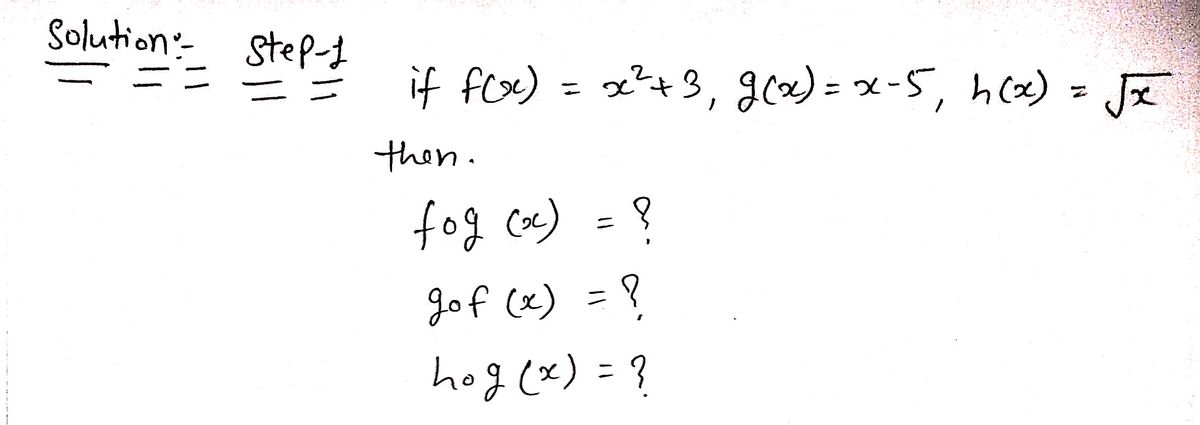 Solution:- Step-1
if f(x) = x²+3, g(x) = x-5, h(x) = √x
then.
fog (x) = ?
gof (x) = ?
hog (x) = ?